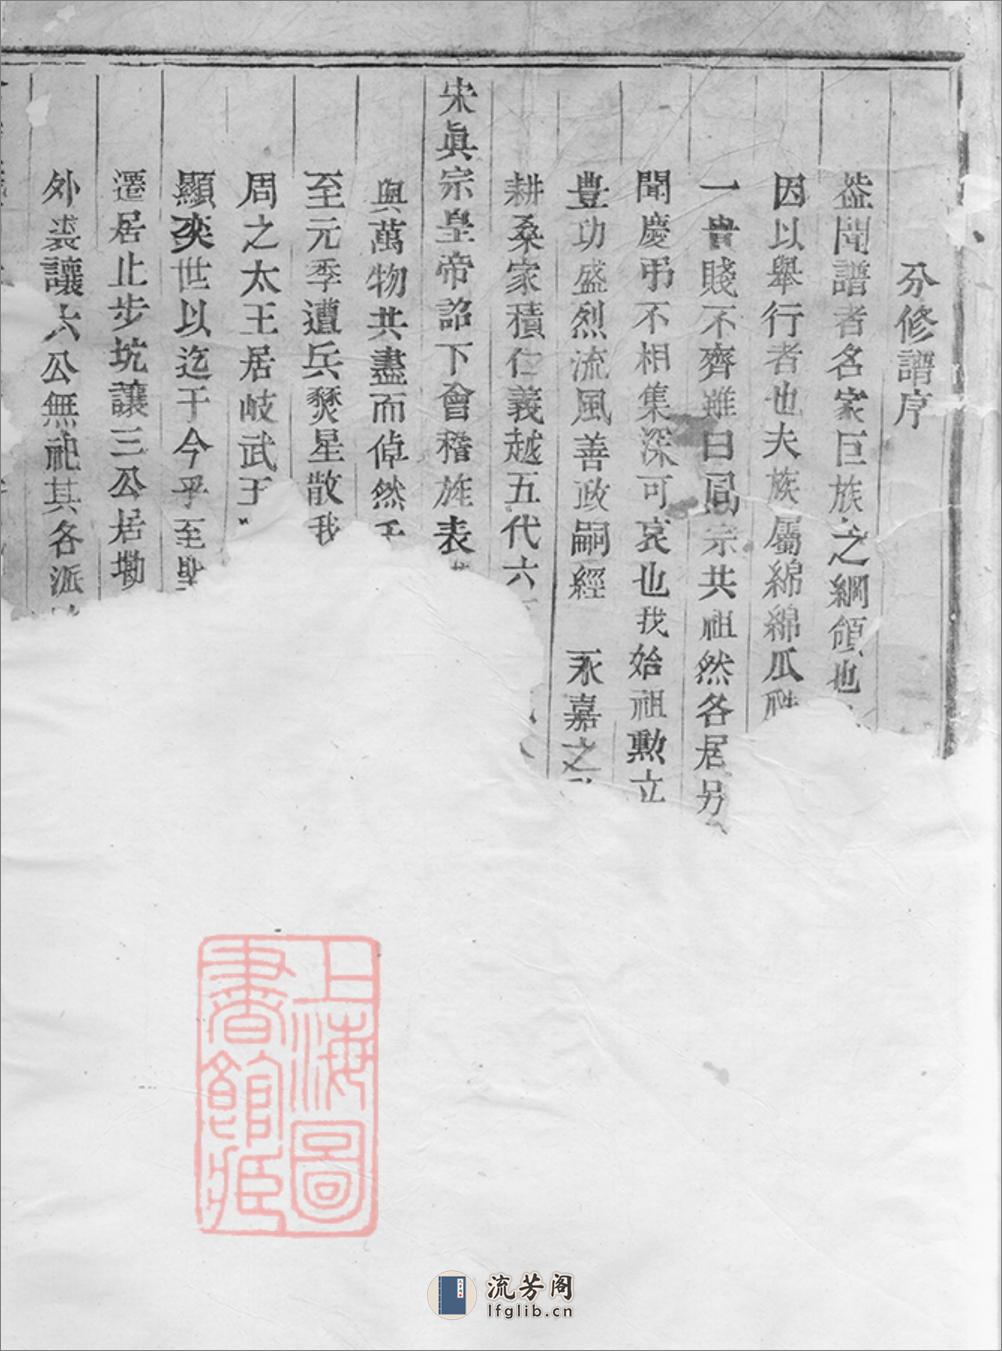 分修譜序
蓋聞譜者名家巨族之綱領也
因以舉行者也夫族屬綿綿瓜
一貴賤不齊雖曰同宗共祖然各居另
聞慶弔不相集深可哀也我始祖勲立
豊功盛烈流風善政嗣經 永嘉之
耕桑家積仁義越五代六
宋眞宗皇帝詔下會稽旌表
與萬物共盡而倬然
至元季遭兵燹星散我
周之太王居岐武王
顯奕世以迄于今乎至
遷居止步坑讓三公居墈
外裘讓六公無祀其各派
上海圖書館藏
流芳阁
lfglib.cn